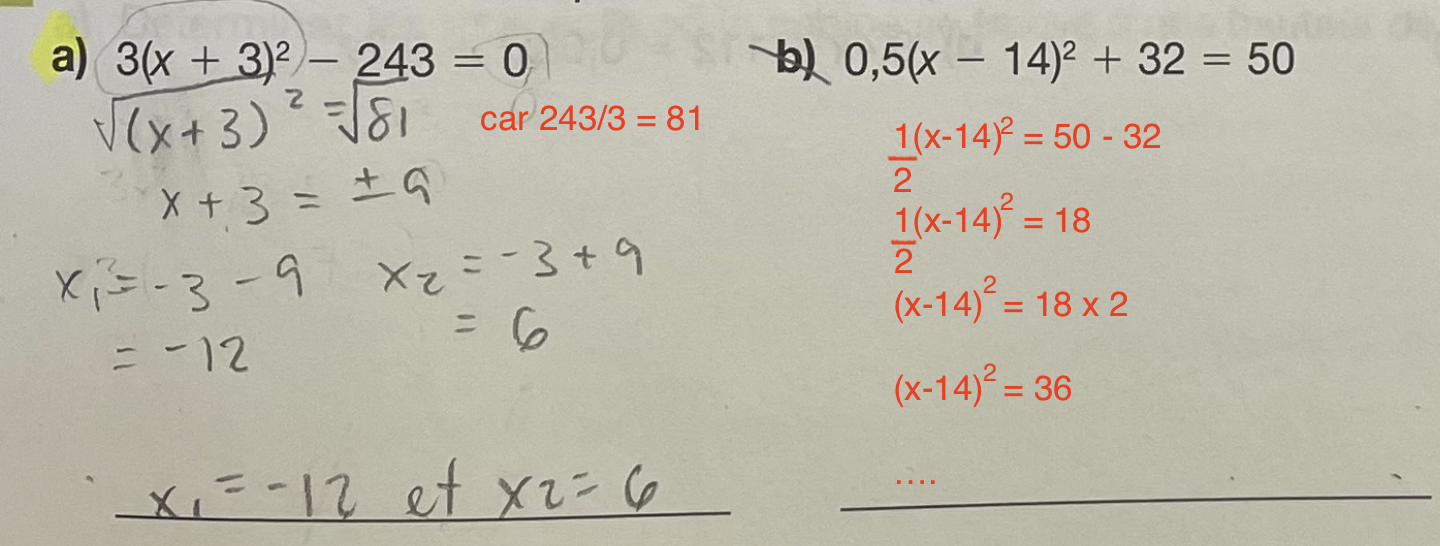 a) 3(x + 3)² – 243 = 0
√(x+3)² = √81
car 243/3 = 81
x + 3 = ± 9
x₁ = -3 - 9
x₂ = -3 + 9
= -12
= 6
x₁ = -12 et x2 = 6
b) 0,5(x – 14)² + 32 = 50
1/2(x-14)² = 50 - 32
1/2(x-14)² = 18
(x-14)² = 18 x 2
(x-14)² = 36
....